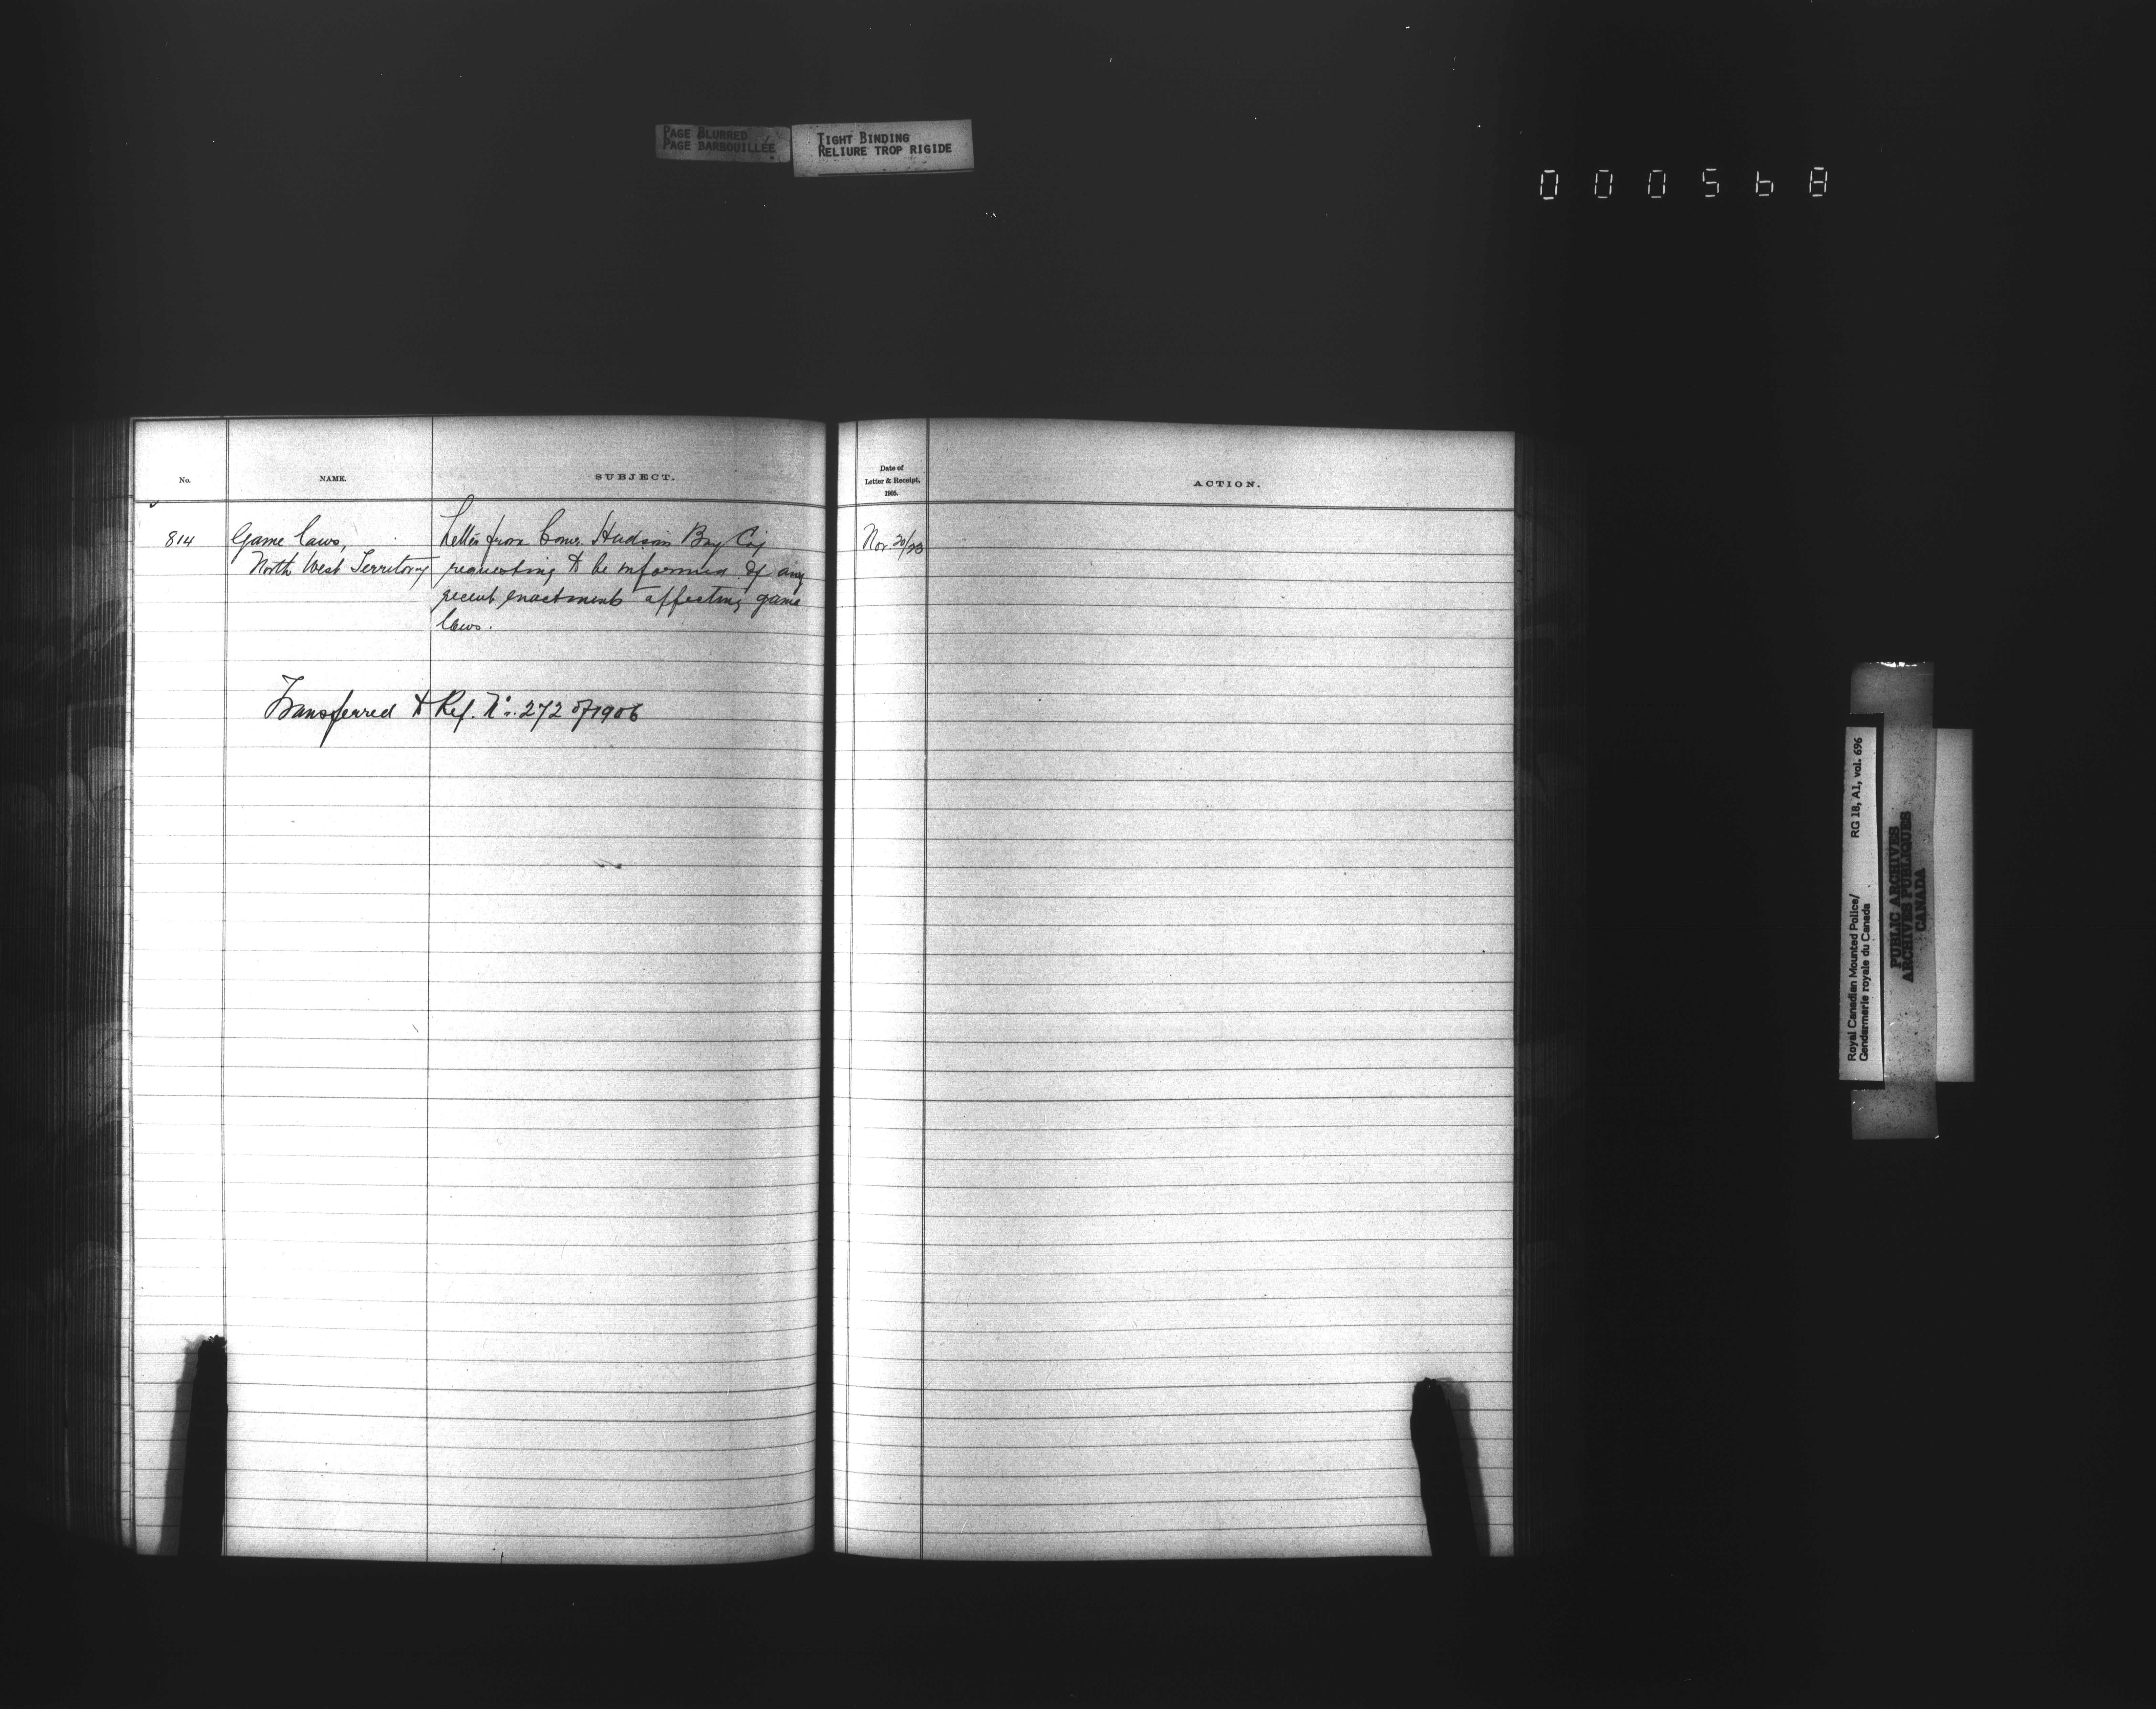 PAGE BLURRED
PAGE BARBOUILLÉE
TIGHT BINDING
RELIURE TROP RIGIDE
000568
No.
NAME.
SUBJECT.
Date of
Letter & Receipt,
1905.
ACTION.
814
Game laws,
North West Territory
Letter from Comr. Hudson Bay Coy
requesting to be informed of any
recent enactments affecting game
laws.
Nov. 20/23
Transferred to Ref. No. 272 of 1906
Royal Canadian Mounted Police/ RG 18, A1, vol. 696
Gendarmerie royale du Canada
PUBLIC ARCHIVES
ARCHIVES PUBLIQUES
CANADA